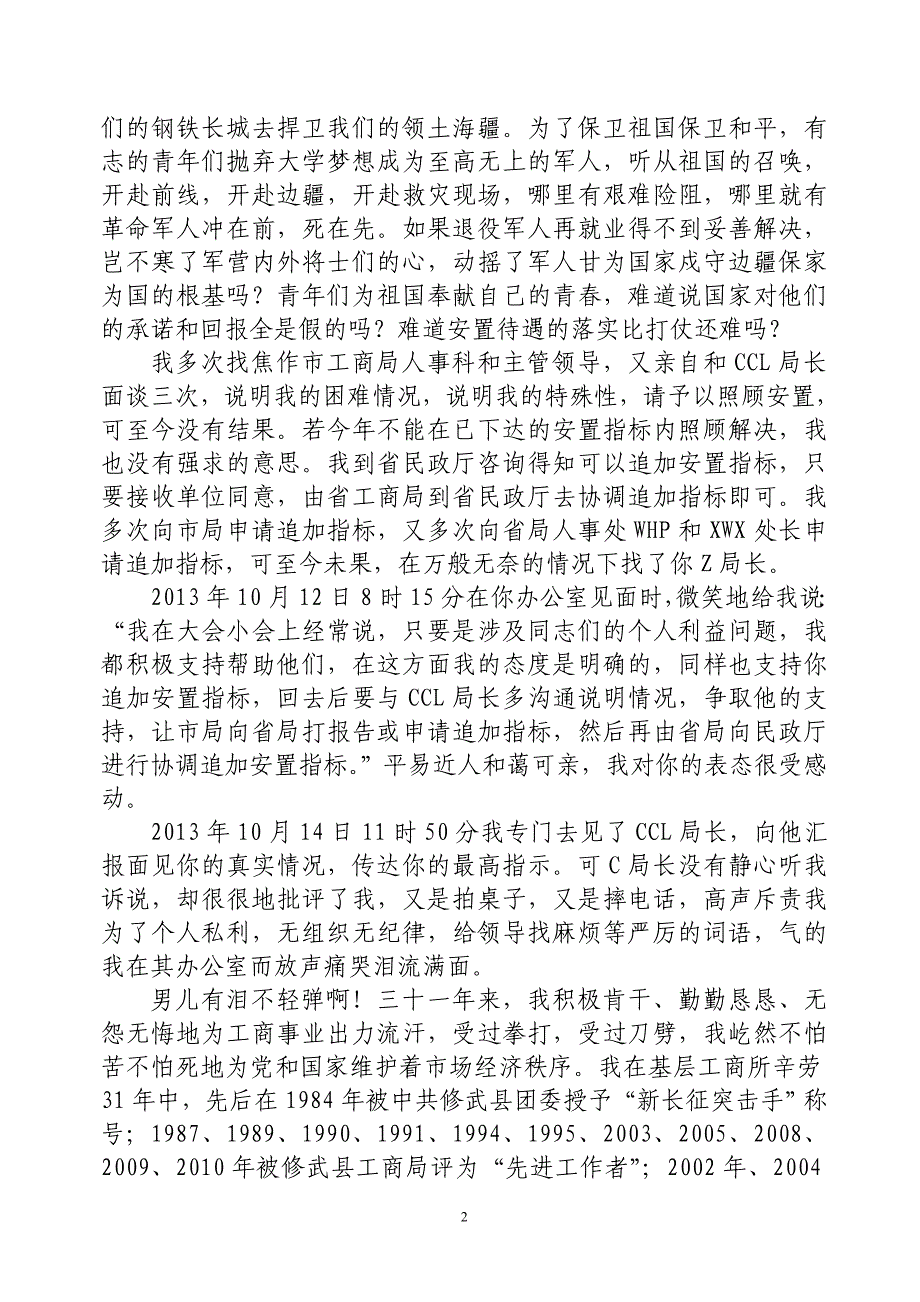 们的钢铁长城去捍卫我们的领土海疆。为了保卫祖国保卫和平，有
志的青年们抛弃大学梦想成为至高无上的军人，听从祖国的召唤，
开赴前线，开赴边疆，开赴救灾现场，哪里有艰难险阻，哪里就有
革命军人冲在前，死在先。如果退役军人再就业得不到妥善解决，
岂不寒了军营内外将士们的心，动摇了军人甘为国家戍守边疆保家
为国的根基吗？青年们为祖国奉献自己的青春，难道说国家对他们
的承诺和回报全是假的吗？难道安置待遇的落实比打仗还难吗？
我多次找焦作市工商局人事科和主管领导，又亲自和 CCL 局长
面谈三次，说明我的困难情况，说明我的特殊性，请予以照顾安置，
可至今没有结果。若今年不能在已下达的安置指标内照顾解决，我
也没有强求的意思。我到省民政厅咨询得知可以追加安置指标，只
要接收单位同意，由省工商局到省民政厅去协调追加指标即可。我
多次向市局申请追加指标，又多次向省局人事处 WHP 和 XWX 处长申
请追加指标，可至今未果，在万般无奈的情况下找了你 Z 局长。
2013 年 10 月 12 日 8 时 15 分在你办公室见面时，微笑地给我说：
“我在大会小会上经常说，只要是涉及同志们的个人利益问题，我
都积极支持帮助他们，在这方面我的态度是明确的，同样也支持你
追加安置指标，回去后要与 CCL 局长多沟通说明情况，争取他的支
持，让市局向省局打报告或申请追加指标，然后再由省局向民政厅
进行协调追加安置指标。”平易近人和蔼可亲，我对你的表态很受感
动。
2013 年 10 月 14 日 11 时 50 分我专门去见了 CCL 局长，向他汇
报面见你的真实情况，传达你的最高指示。可 C 局长没有静心听我
诉说，却很很地批评了我，又是拍桌子，又是摔电话，高声斥责我
为了个人私利，无组织无纪律，给领导找麻烦等严厉的词语，气的
我在其办公室而放声痛哭泪流满面。
男儿有泪不轻弹啊！三十一年来，我积极肯干、勤勤恳恳、无
怨无悔地为工商事业出力流汗，受过拳打，受过刀劈，我屹然不怕
苦不怕死地为党和国家维护着市场经济秩序。我在基层工商所辛劳
31 年中，先后在 1984 年被中共修武县团委授予“新长征突击手”称
号；1987、1989、1990、1991、1994、1995、2003、2005、2008、
2009、2010 年被修武县工商局评为“先进工作者”；2002 年、2004
2